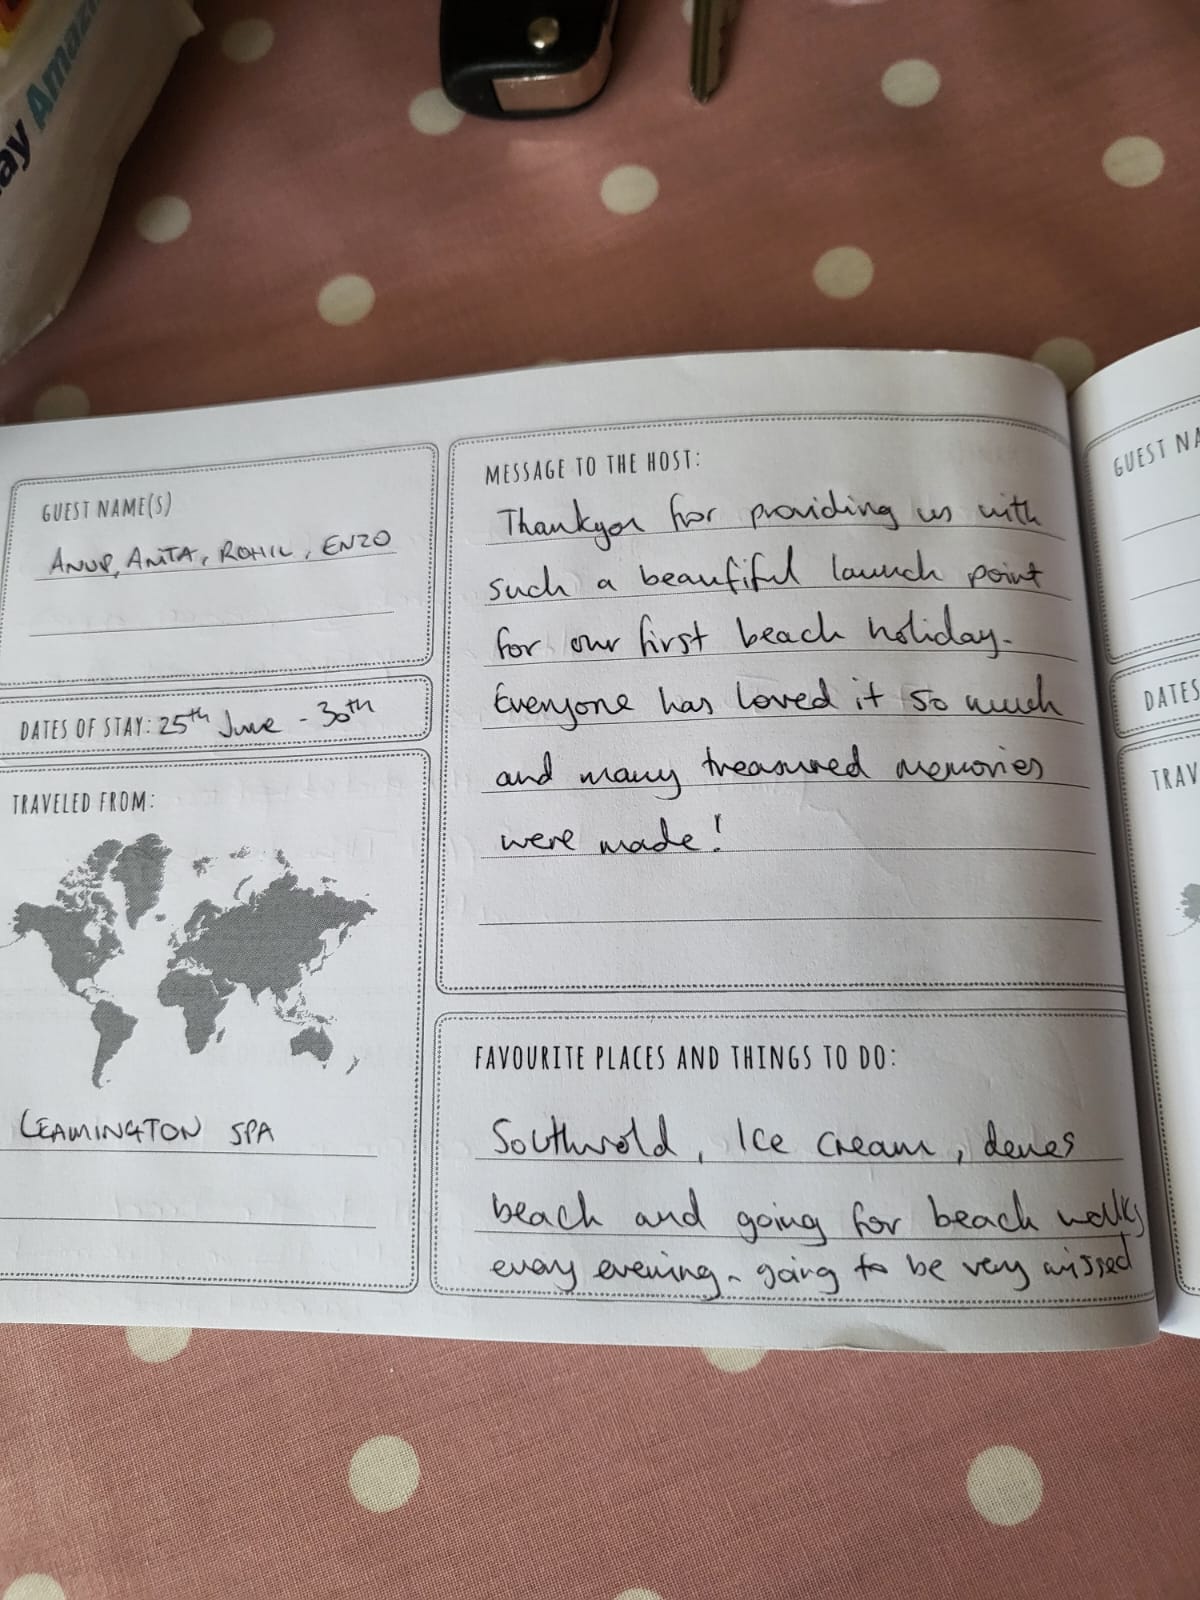 ay Amazi
GUEST NAME(S)
ANUP, ANITA, ROHIL, ENZO
DATES OF STAY: 25th June - 30th
TRAVELED FROM:
LEAMINGTON SPA
MESSAGE TO THE HOST:
Thankyou for providing us with
such a beautiful launch point
for our first beach holiday.
Everyone has loved it so much
and many treasured memories
were made!
FAVOURITE PLACES AND THINGS TO DO:
Southwold, Ice cream, denes
beach and going for beach walks
every evening - going to be very missed
GUEST NA
DATES
TRAV